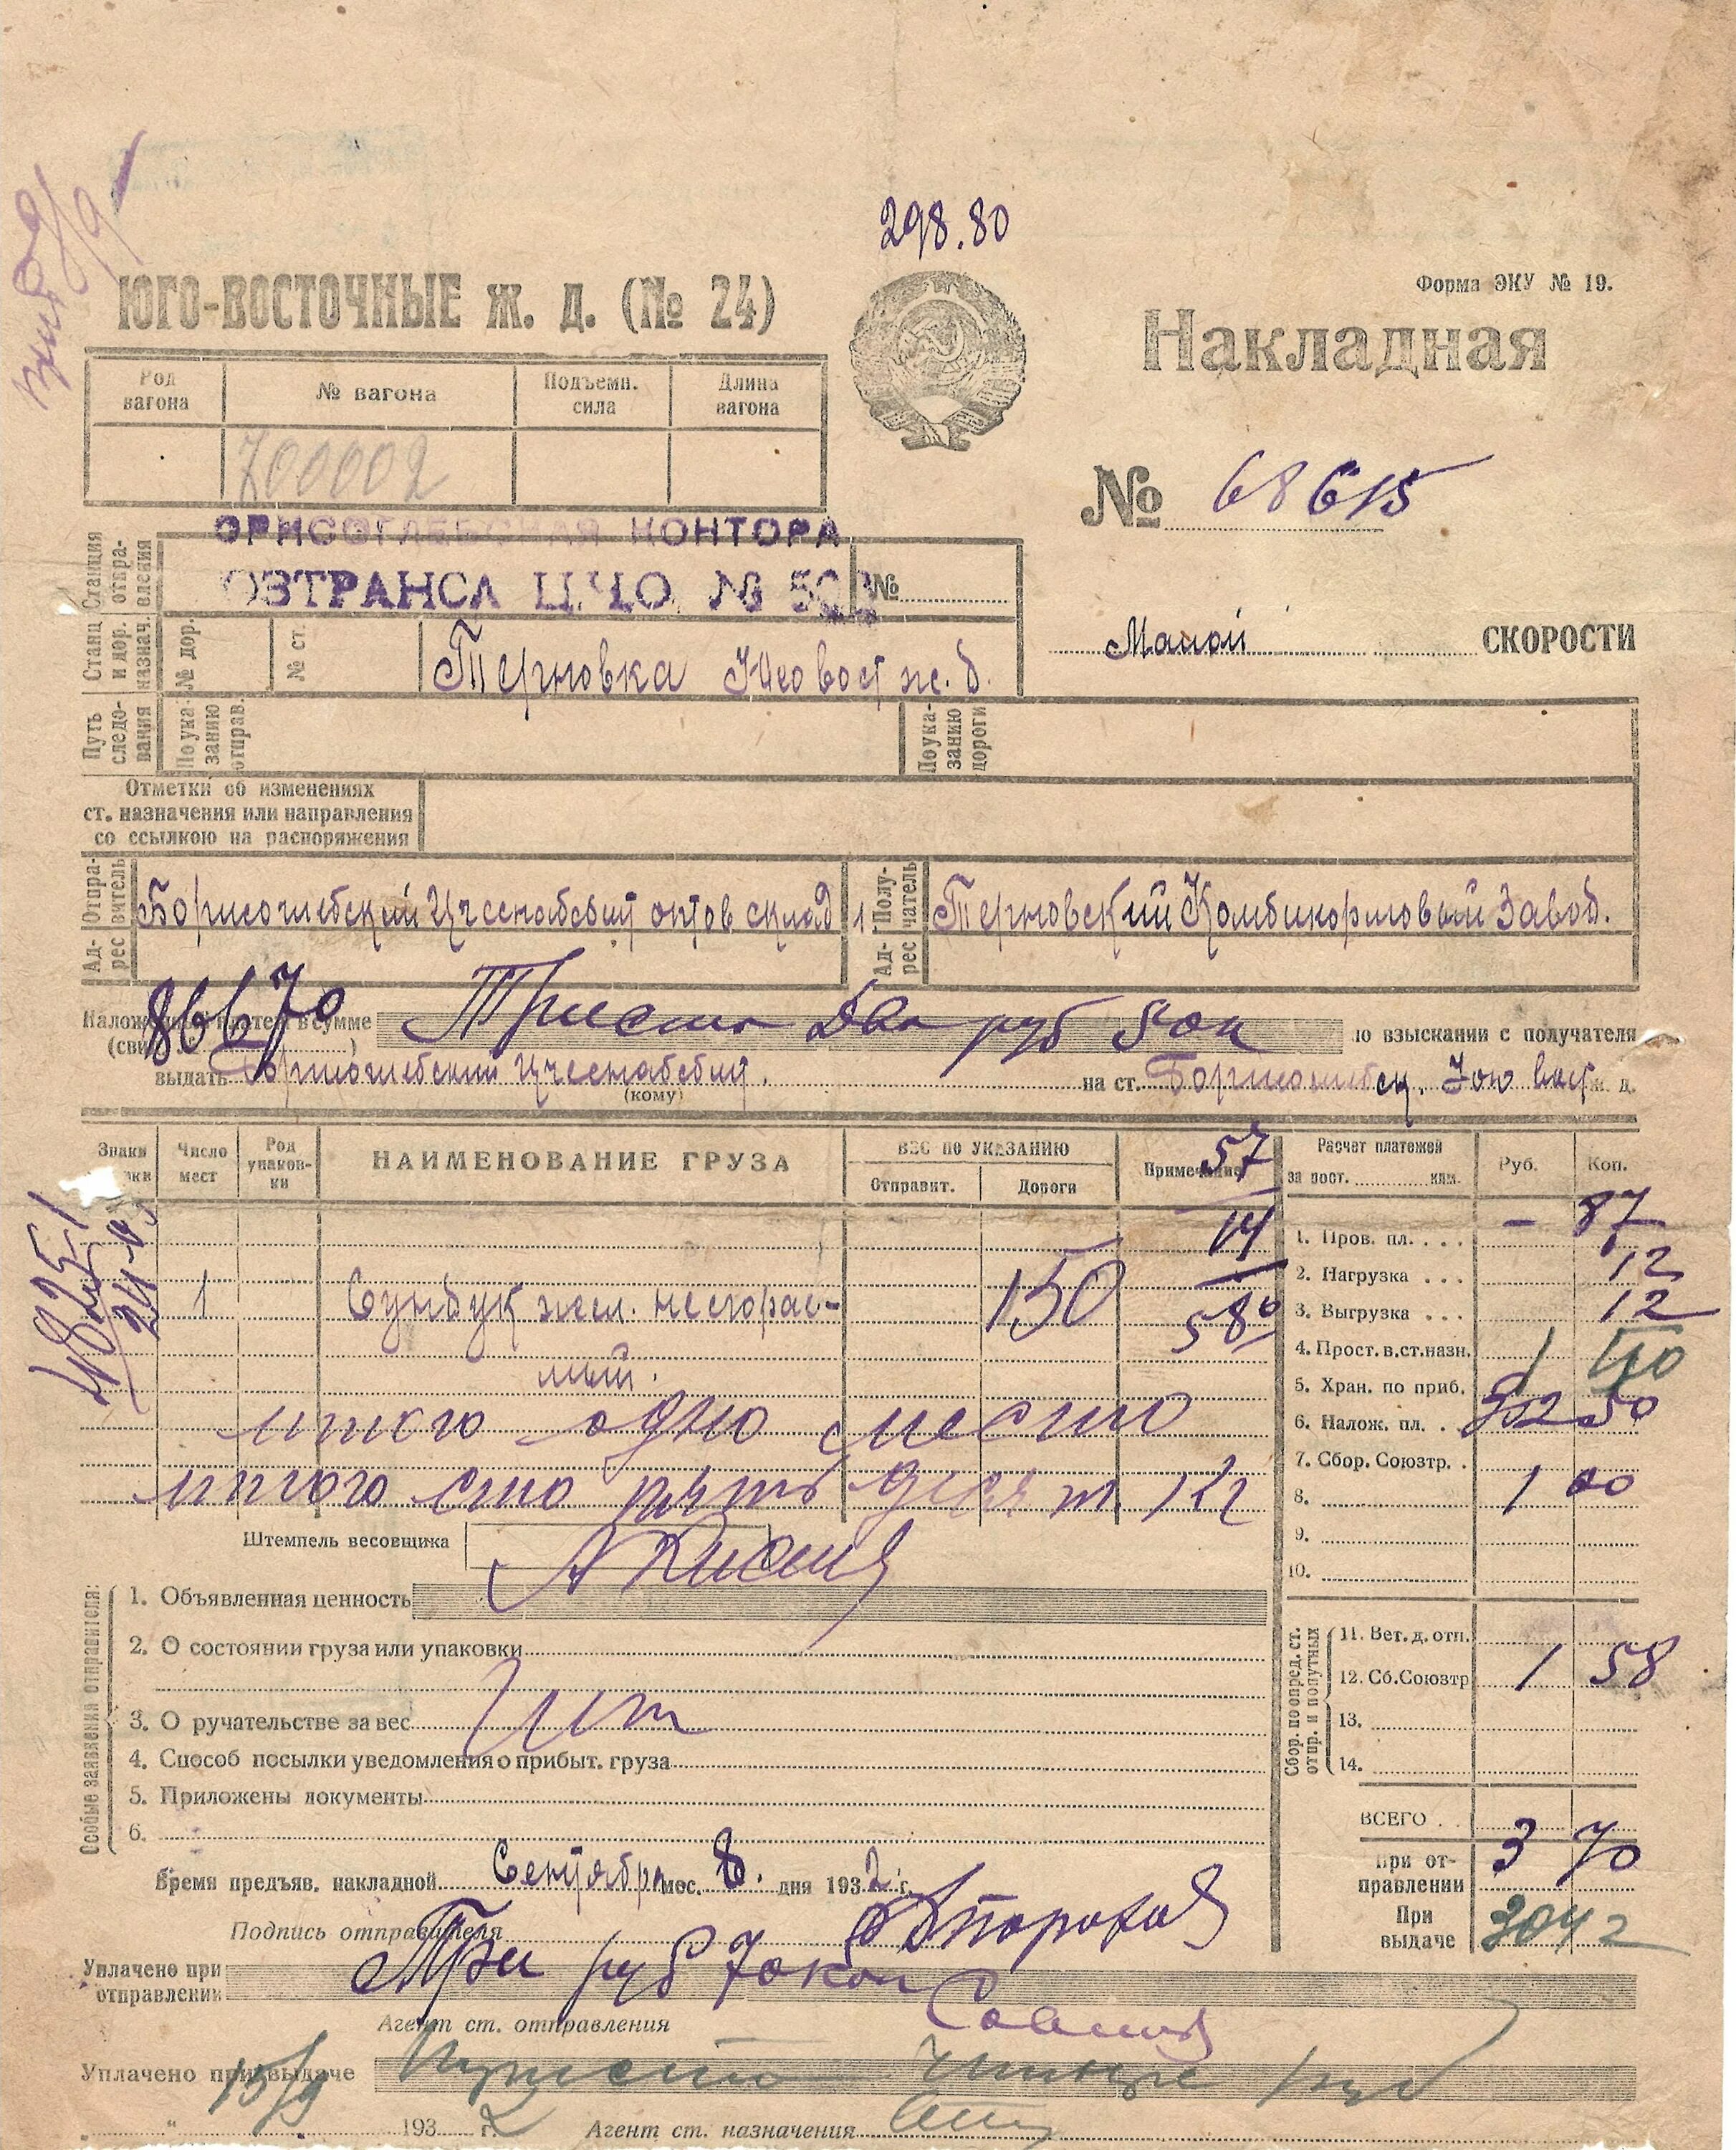 298.80
ЮГО-ВОСТОЧНЫЕ Ж. Д. (№ 24)
Форма ЭКУ № 19.
Накладная
Род вагона
№ вагона
Подъемн. сила
Длина вагона
700002
№ 68615
ОРИСОГЛЕБСКАЯ КОНТОРА
Станция отправления
ОЗТРАНСА Ц.Ч.О. №
№
Малой СКОРОСТИ
Станц. и дор. назнач.
№ дор.
№ ст.
Терновка ж. д.
Путь следования
По указанию отправ.
По указанию дороги
Отметки об изменениях
ст. назначения или направления
со ссылкою на распоряжения
Отправитель
Борисоглебский оптов склад
Получатель
Терновский Комбикормовый Завод.
Адрес
Адрес
86670
в сумме
Триста два руб 50 к
по взыскании с получателя
выдать Борисоглебский
на ст. Борисоглебск. Юго вост ж. д.
(кому)
Знаки
Число мест
Род упаковки
НАИМЕНОВАНИЕ ГРУЗА
ВЕС ПО УКАЗАНИЮ
Отправит.
Дороги
Примечание
57
14
58
Расчет платежей
за пост. клм.
Руб.
Коп.
1. Пров. пл. . . . – 87
2. Нагрузка . . . 12
3. Выгрузка . . . 12
4. Прост. в. ст. назн. 1 40
5. Хран. по приб.
6. Налож. пл. . 302 50
7. Сбор. Союзтр. .
8. 1 00
9.
10.
48251
1 Сундук жел. несгорае- 150
мый.
итого одно место
итого сто пять десят кг
Штемпель весовщика
Особые заявления отправителя:
1. Объявленная ценность
2. О состоянии груза или упаковки
3. О ручательстве за вес
4. Способ посылки уведомления о прибыт. груза
5. Приложены документы
6.
Сбор. по опред. ст. отпр. и попутных
11. Вет. д. отп.
12. Сб. Союзтр 1 58
13.
14.
ВСЕГО . .
При отправлении 3 70
При выдаче 304 2
Время предъяв. накладной Сентября мес. 8. дня 1932 г.
Подпись отправителя
Уплачено при отправлении
Три руб 70 коп
Агент ст. отправления
Уплачено при выдаче
15/9
Триста четыре руб
" 1932 г.
Агент ст. назначения